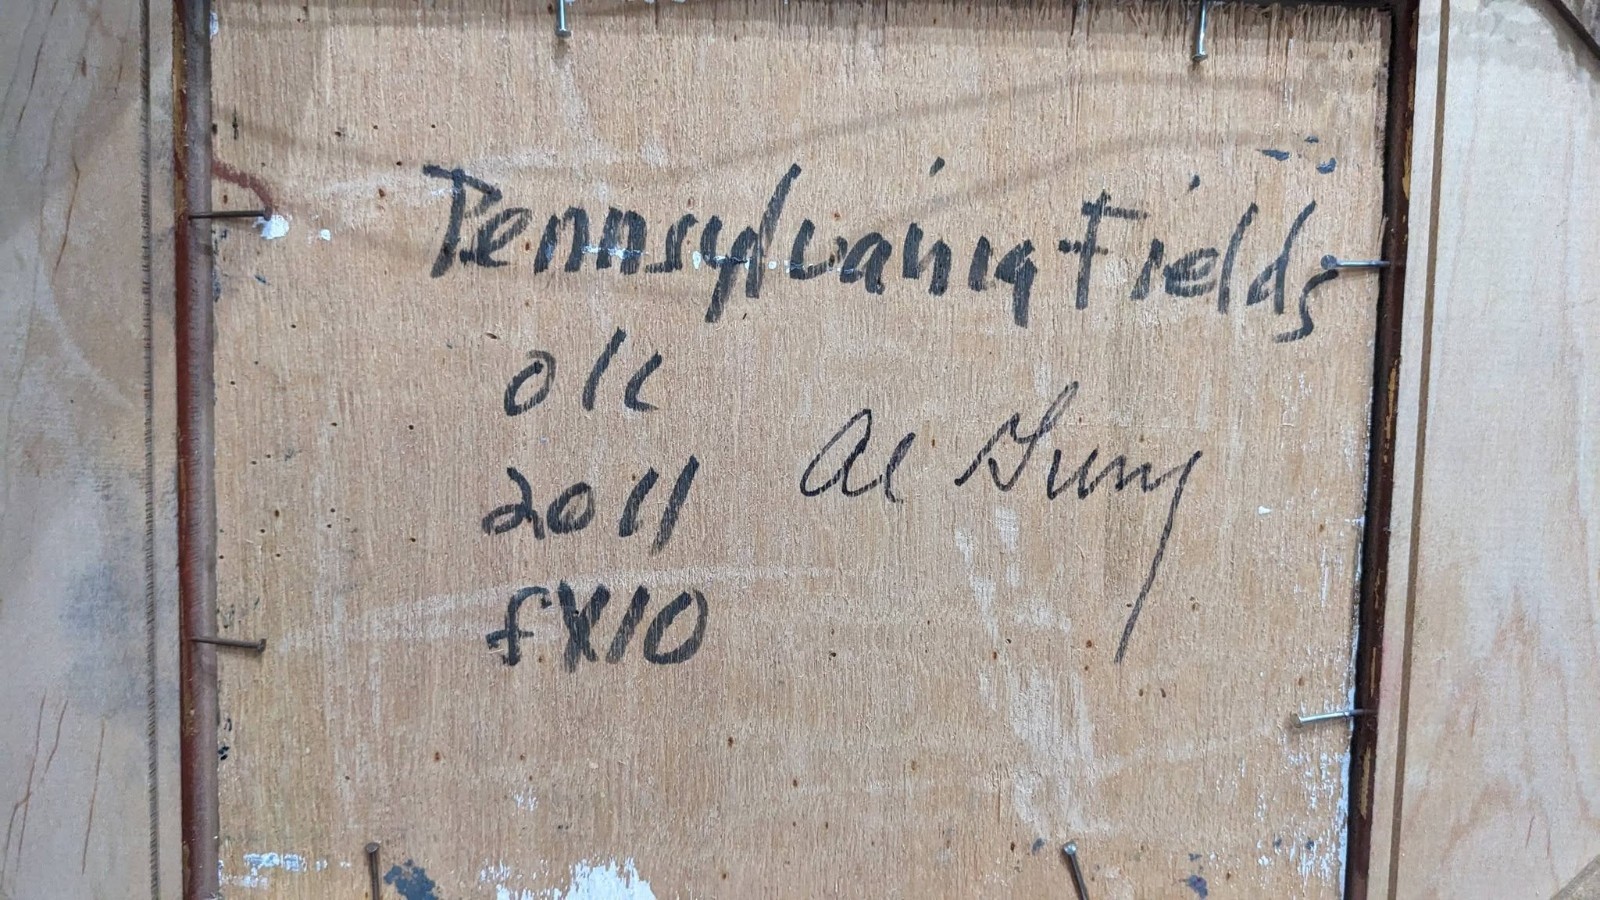 Pennsylvania Fields
oil
2011
8X10
Al Gury